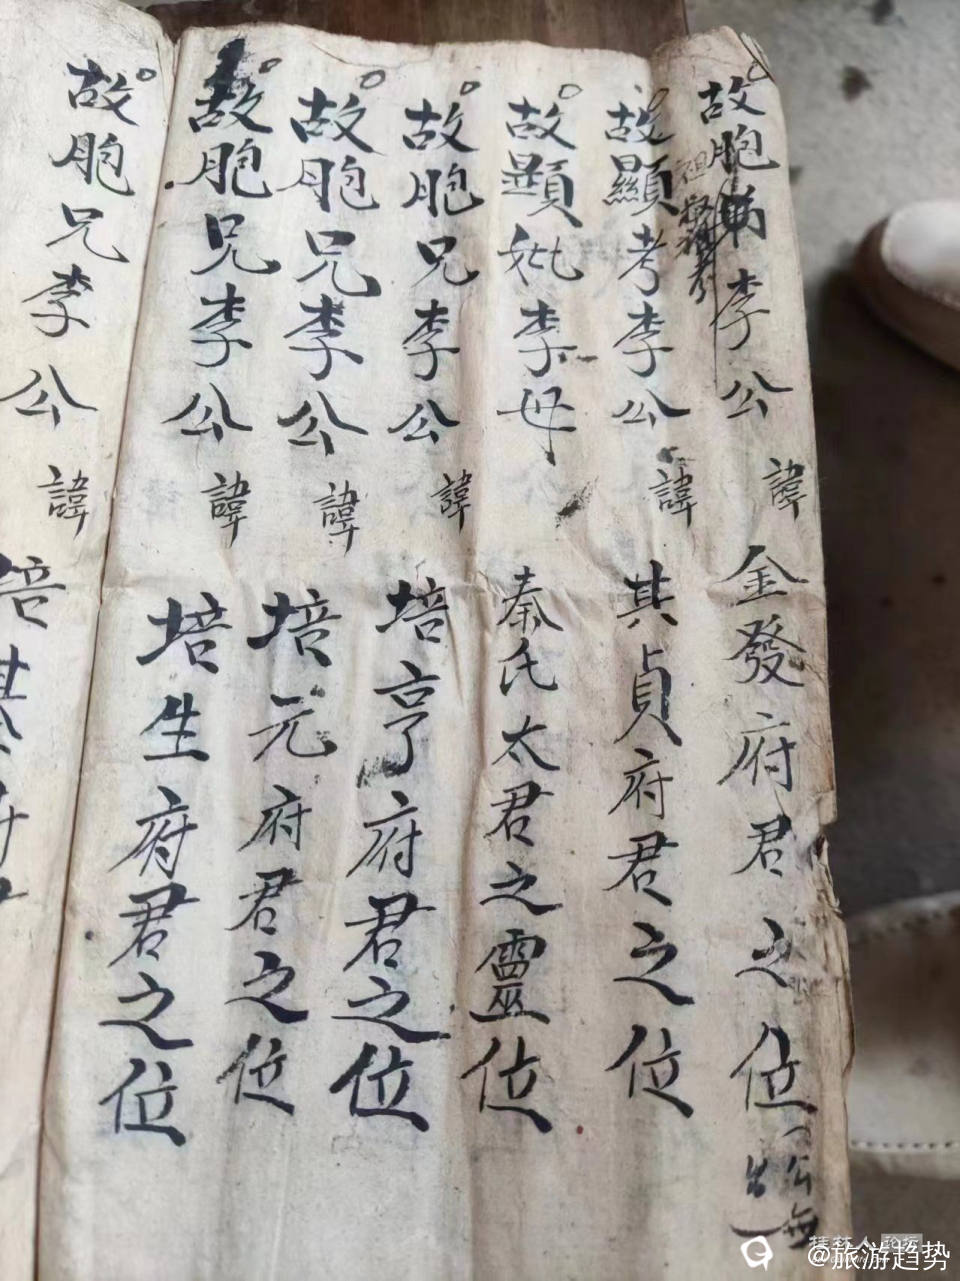 故胞李公諱金發府君之位
公無出
故顯考李公諱其貞府君之位
故顯妣李母秦氏太君之靈位
故胞兄李公諱培亨府君之位
故胞兄李公諱培元府君之位
故胞兄李公諱培生府君之位
故胞兄李公諱培其
@旅游趋势